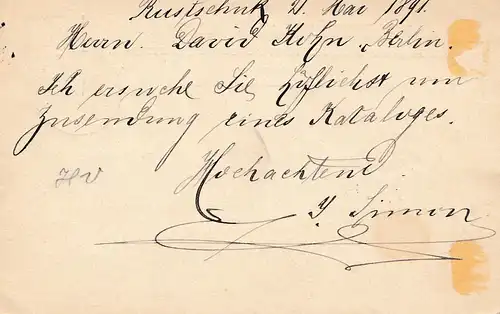 Rustschuk 21. Mai 1891.
Herrn. David Kohn, Berlin.
Ich ersuche Sie höflichst um
Zusendung eines Kataloges.
Hochachtend
Y Simon